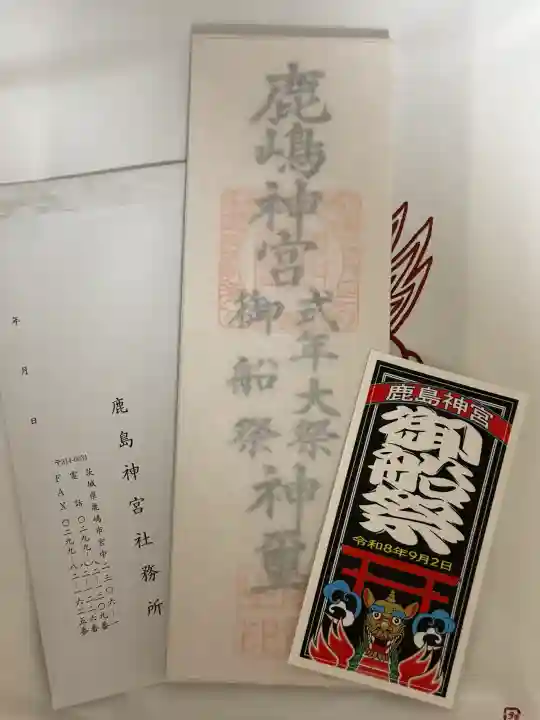 鹿嶋神宮
式年大祭
御船祭
神璽
年
月
日
鹿島神宮社務所
〒314-0031
茨城県鹿嶋市宮中二三〇六-一
電話〇二九九-八二-一二〇九番
FAX〇二九九-八二-一六二五番
鹿島神宮
御船祭
令和8年9月2日